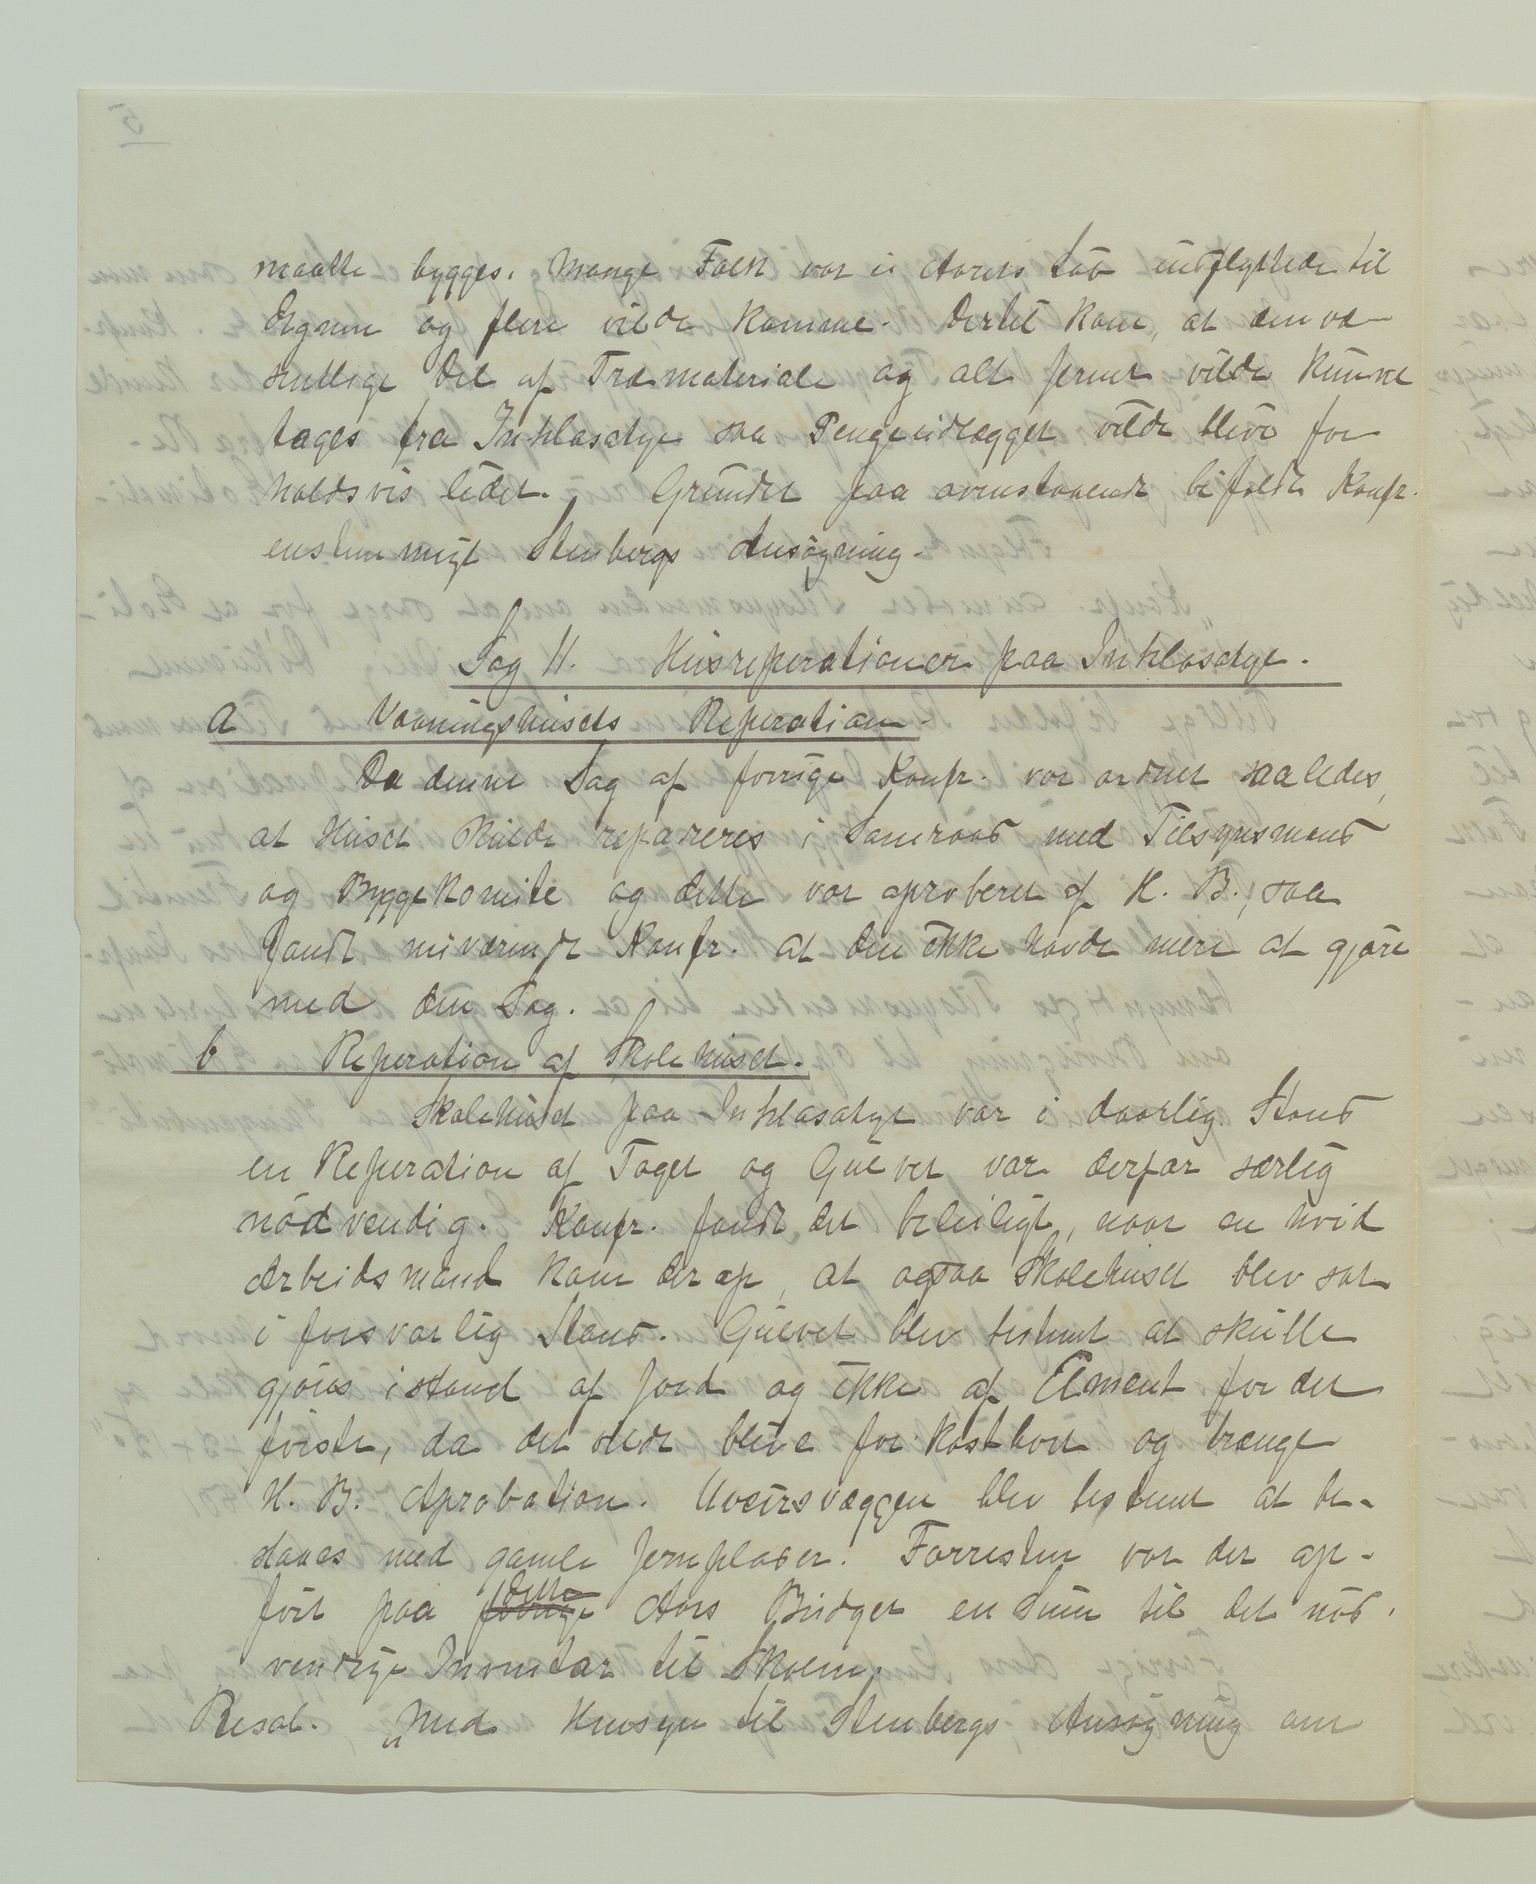 maatte bygges. Mange Folk var i Aarets Løb indflyttede til
Egnen og flere vilde komme. Dertil kom, at den væ-
sentlige Del af Træmateriale og alt Jernet vilde kunne
tages fra Inhlasatye saa Pengeudlægget vilde blive for
holdsvis lidet. Grundet paa ovenstaaende bifaldt Konfr.
enstemmigt Stenbergs Ansøgning.
Sag 11. Husreperationer paa Inhlasatye.
a Vaaningshusets Reperation.
Da denne Sag af forrige Konfr. var ordnet saaledes,
at Huset skulde repareres i Samraad med Tilsynsmand
og Byggekomite og dette var aproberet af H. B., saa
fandt nuværende Konfr. at den ikke havde mere at gjøre
med den Sag.
b Reperation af Skolehuset.
Skolehuset paa Inhlasatye var i daarlig Stand
en Reperation af Taget og Gulvet var derfor særlig
nødvendig. Konfr. fandt det beleiligt, naar en hvid
Arbeidsmand kom derop, at ogsaa Skolehuset blev sat
i forsvarlig Stand. Gulvet blev bestemt at skulle
gjøres istand af Jord og ikke af Cement for det
første, da det vilde blive for kostbart og trænge
H. B. Aprobation. Uveirsvæggen blev bestemt at be-
slaaes med gamle Jernplader. Forresten var der op-
ført paa forrige dette Aars Budget en Sum til det nød-
vendige Inventar til Skolen.
Resol. „Med Hensyn til Stenbergs Ansøgning om